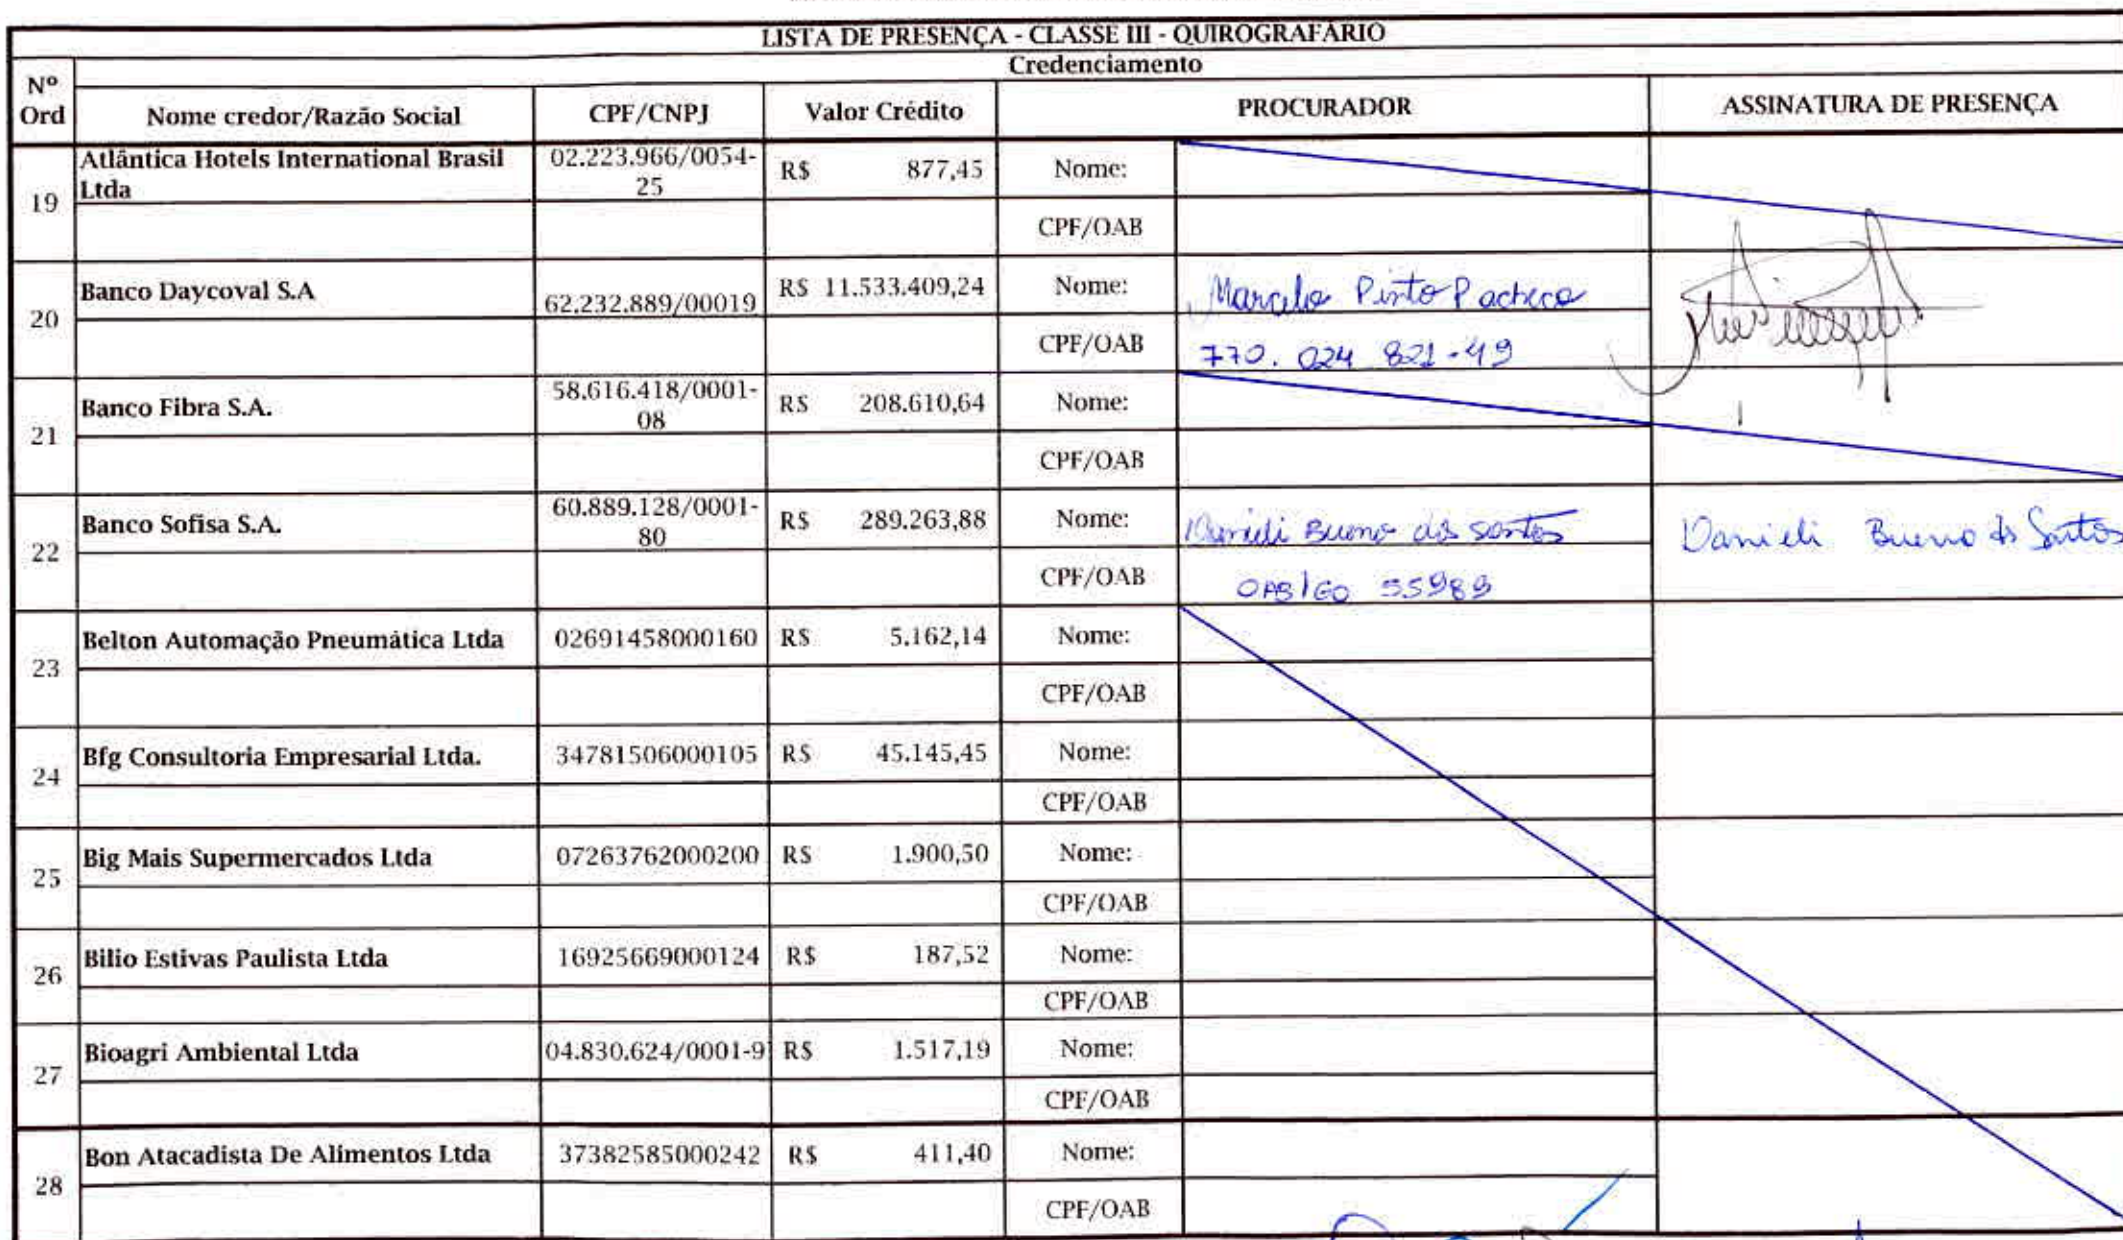 LISTA DE PRESENÇA - CLASSE III - QUIROGRAFÁRIO
Credenciamento
Nº Ord Nome credor/Razão Social CPF/CNPJ Valor Crédito PROCURADOR ASSINATURA DE PRESENÇA
19 Atlântica Hotels International Brasil Ltda 02.223.966/0054-25 R$ 877,45 Nome:
CPF/OAB
20 Banco Daycoval S.A 62.232.889/00019 R$ 11.533.409,24 Nome: Marcelo Pinto Pacheco
CPF/OAB 770.024 821-49
21 Banco Fibra S.A. 58.616.418/0001-08 R$ 208.610,64 Nome:
CPF/OAB
22 Banco Sofisa S.A. 60.889.128/0001-80 R$ 289.263,88 Nome: Danieli Bueno dos Santos Danieli Bueno ds Santos
CPF/OAB OAB/GO 55989
23 Belton Automação Pneumática Ltda 02691458000160 R$ 5.162,14 Nome:
CPF/OAB
24 Bfg Consultoria Empresarial Ltda. 34781506000105 R$ 45.145,45 Nome:
CPF/OAB
25 Big Mais Supermercados Ltda 07263762000200 R$ 1.900,50 Nome:
CPF/OAB
26 Bilio Estivas Paulista Ltda 16925669000124 R$ 187,52 Nome:
CPF/OAB
27 Bioagri Ambiental Ltda 04.830.624/0001-9 R$ 1.517,19 Nome:
CPF/OAB
28 Bon Atacadista De Alimentos Ltda 37382585000242 R$ 411,40 Nome:
CPF/OAB